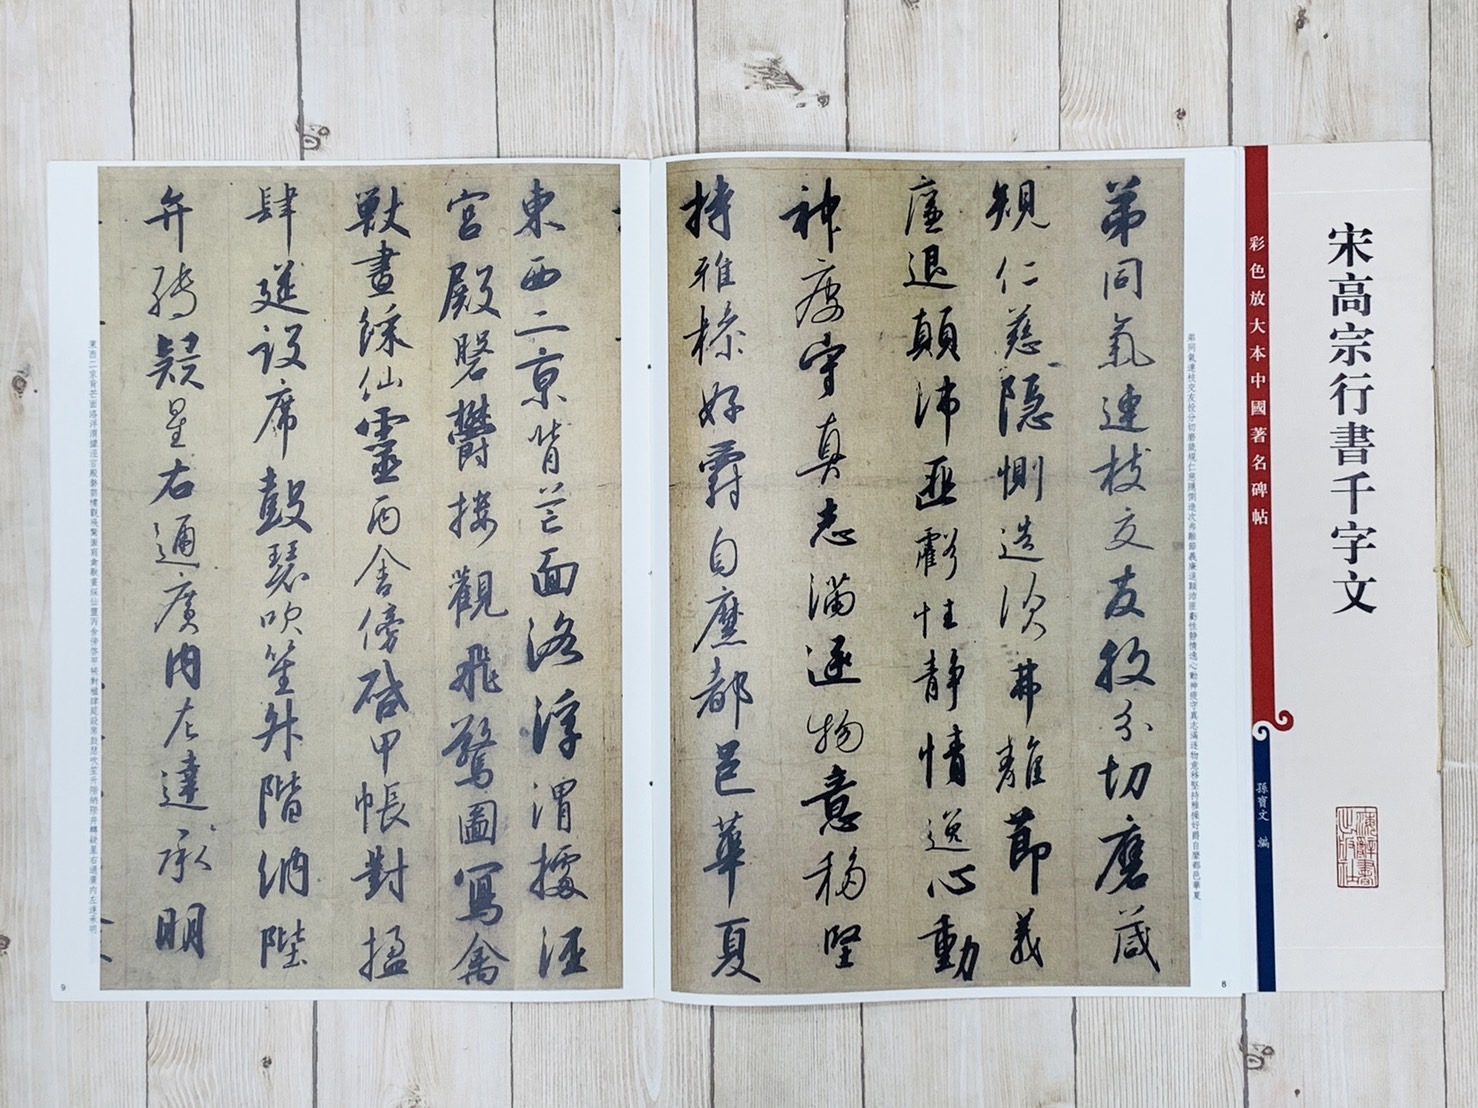 宋高宗行書千字文
彩色放大本中國著名碑帖
孫寶文 編
弟同氣連枝交友投分切磨箴規仁慈隱惻造次弗離節義廉退顛沛匪虧性靜情逸心動神疲守真志滿逐物意移堅持雅操好爵自縻都邑華夏
弟同氣連枝交友投分切磨箴
規仁慈隱惻造次弗離節義
廉退顛沛匪虧性靜情逸心動
神疲守真志滿逐物意移堅
持雅操好爵自縻都邑華夏
8
東西二京背芒面洛浮渭據涇
宮殿磐鬱樓觀飛驚圖寫禽
獸畫綵仙靈丙舍傍啓甲帳對楹
肆筵設席鼓瑟吹笙升階納陛
弁轉疑星右通廣內左達承明
東西二京背芒面洛浮渭據涇宮殿磐鬱樓觀飛驚圖寫禽獸畫綵仙靈丙舍傍啓甲帳對楹肆筵設席鼓瑟吹笙升階納陛弁轉疑星右通廣內左達承明
9